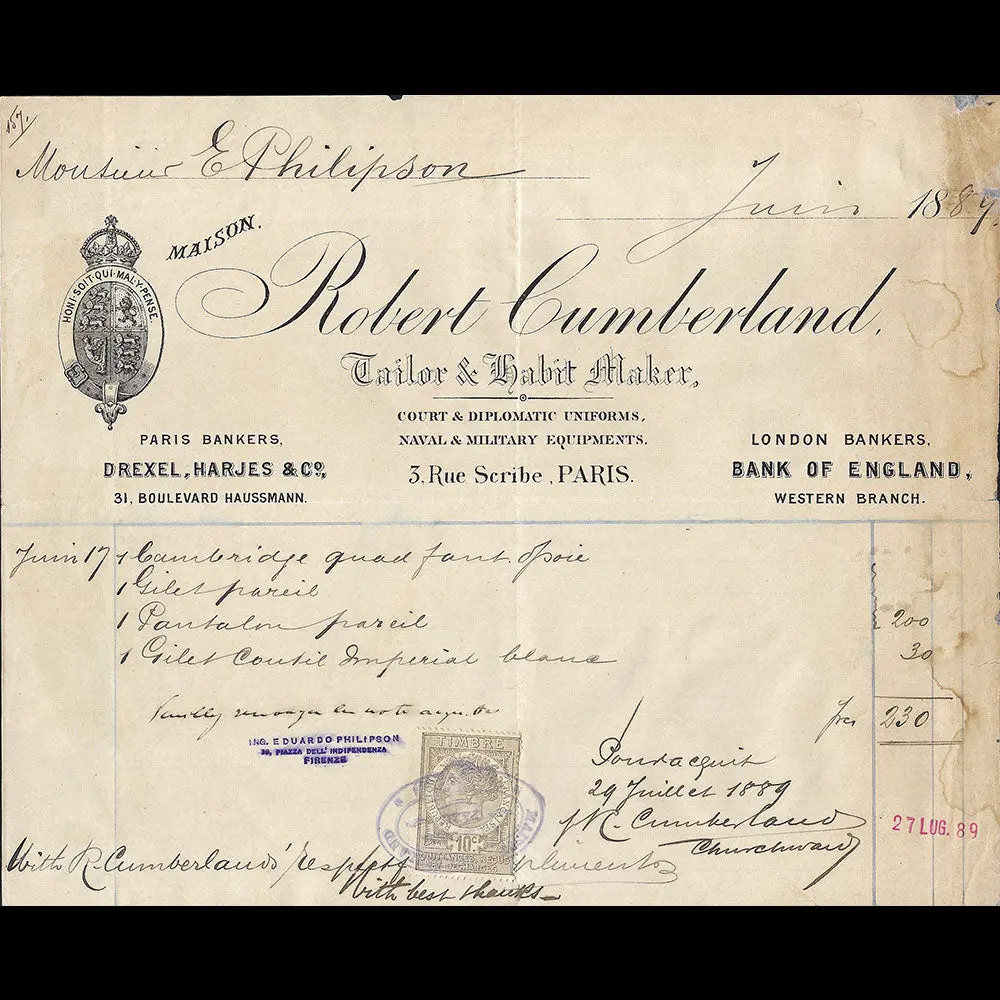 157.
Monsieur E Philipson
Juin 1889.
HONI·SOIT·QUI·MAL·Y·PENSE
MAISON.
Robert Cumberland.
Tailor & Habit Maker,
COURT & DIPLOMATIC UNIFORMS,
NAVAL & MILITARY EQUIPMENTS.
3, Rue Scribe, PARIS.
PARIS BANKERS,
DREXEL, HARJES & Co,
31, BOULEVARD HAUSSMANN.
LONDON BANKERS,
BANK OF ENGLAND,
WESTERN BRANCH.
Juin 17 1 Cambridge quad fant. soie
1 Gilet pareil
1 Pantalon pareil 200
1 Gilet Coutil Imperial blanc 30
frcs 230
ING. EDUARDO PHILIPSON
39, PIAZZA DELL' INDIPENDENZA
FIRENZE
TIMBRE
10c
Pour acquit
29 Juillet 1889
Cumberland
Churchward
27 LUG. 89
With R. Cumberlands' respect
with best thanks